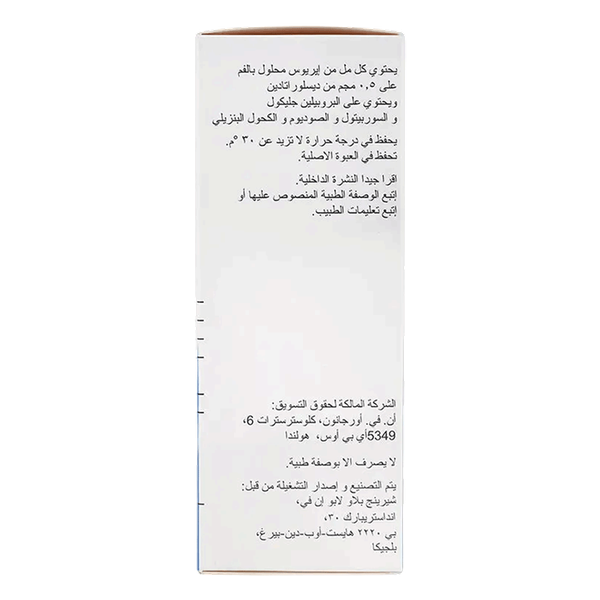 يحتوي كل مل من إيريوس محلول بالفم
على ٠,٥ مجم من ديسلوراتادين
ويحتوي على البروبيلين جليكول
و السوربيتول و الصوديوم و الكحول البنزيلي
يحفظ في درجة حرارة لا تزيد عن ٣٠ °م.
تحفظ في العبوة الاصلية.
اقرا جيدا النشرة الداخلية.
إتبع الوصفة الطبية المنصوص عليها أو
إتبع تعليمات الطبيب.
الشركة المالكة لحقوق التسويق:
أن. في. أورجانون، كلوسترسترات 6،
5349أي بي أوس، هولندا
لا يصرف الا بوصفة طبية.
يتم التصنيع و إصدار التشغيلة من قبل:
شيرينج بلاو لابو إن في،
انداستريبارك ٣٠،
بي ٢٢٢٠ هايست-أوب-دين-بيرغ،
بلجيكا